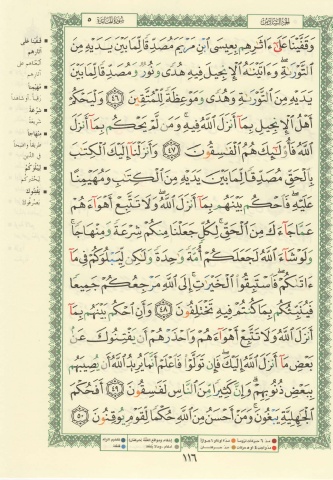 سورة المائدة ٥
وَقَفَّيْنَا عَلَىٰٓ ءَاثَٰرِهِم بِعِيسَى ٱبْنِ مَرْيَمَ مُصَدِّقًا لِّمَا بَيْنَ يَدَيْهِ مِنَ
ٱلتَّوْرَىٰةِ وَءَاتَيْنَٰهُ ٱلْإِنجِيلَ فِيهِ هُدًى وَنُورٌ وَمُصَدِّقًا لِّمَا بَيْنَ
يَدَيْهِ مِنَ ٱلتَّوْرَىٰةِ وَهُدًى وَمَوْعِظَةً لِّلْمُتَّقِينَ ٤٦ وَلْيَحْكُمْ
أَهْلُ ٱلْإِنجِيلِ بِمَآ أَنزَلَ ٱللَّهُ فِيهِ وَمَن لَّمْ يَحْكُم بِمَآ أَنزَلَ
ٱللَّهُ فَأُو۟لَٰٓئِكَ هُمُ ٱلْفَٰسِقُونَ ٤٧ وَأَنزَلْنَآ إِلَيْكَ ٱلْكِتَٰبَ
بِٱلْحَقِّ مُصَدِّقًا لِّمَا بَيْنَ يَدَيْهِ مِنَ ٱلْكِتَٰبِ وَمُهَيْمِنًا
عَلَيْهِ فَٱحْكُم بَيْنَهُم بِمَآ أَنزَلَ ٱللَّهُ وَلَا تَتَّبِعْ أَهْوَآءَهُمْ
عَمَّا جَآءَكَ مِنَ ٱلْحَقِّ لِكُلٍّ جَعَلْنَا مِنكُمْ شِرْعَةً وَمِنْهَاجًا
وَلَوْ شَآءَ ٱللَّهُ لَجَعَلَكُمْ أُمَّةً وَٰحِدَةً وَلَٰكِن لِّيَبْلُوَكُمْ فِى مَآ
ءَاتَىٰكُمْ فَٱسْتَبِقُوا۟ ٱلْخَيْرَٰتِ إِلَى ٱللَّهِ مَرْجِعُكُمْ جَمِيعًا
فَيُنَبِّئُكُم بِمَا كُنتُمْ فِيهِ تَخْتَلِفُونَ ٤٨ وَأَنِ ٱحْكُم بَيْنَهُم بِمَآ
أَنزَلَ ٱللَّهُ وَلَا تَتَّبِعْ أَهْوَآءَهُمْ وَٱحْذَرْهُمْ أَن يَفْتِنُوكَ عَنۢ
بَعْضِ مَآ أَنزَلَ ٱللَّهُ إِلَيْكَ فَإِن تَوَلَّوْا۟ فَٱعْلَمْ أَنَّمَا يُرِيدُ ٱللَّهُ أَن يُصِيبَهُم
بِبَعْضِ ذُنُوبِهِمْ وَإِنَّ كَثِيرًا مِّنَ ٱلنَّاسِ لَفَٰسِقُونَ ٤٩ أَفَحُكْمَ
ٱلْجَٰهِلِيَّةِ يَبْغُونَ وَمَنْ أَحْسَنُ مِنَ ٱللَّهِ حُكْمًا لِّقَوْمٍ يُوقِنُونَ ٥٠
قفينا على
آثارهم
مهيمنا
شرعة
شريعة
منهاجا
في الدين
ليبلوكم
ليختبركم
يفتنوك
يصرفوك
١١٦